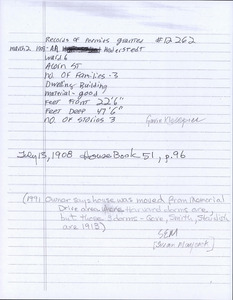 Records of Permits granted #12262
March 2, 1908 - AA Aderstedt
Ward 6
Athin ST
No. OF Families - 3
Dwelling Building
Material - good
Feet Front 22'6"
Feet Deep 47'6"
No. OF Stories 3
July 13, 1908 House Book 51, p.96
(1991 Owner says house was moved from Memorial
Drive area where Harvard dorms are,
but those 3 dorms - Gore, Smith, Standish
are 1913)
SEM
[Susan Maycock]